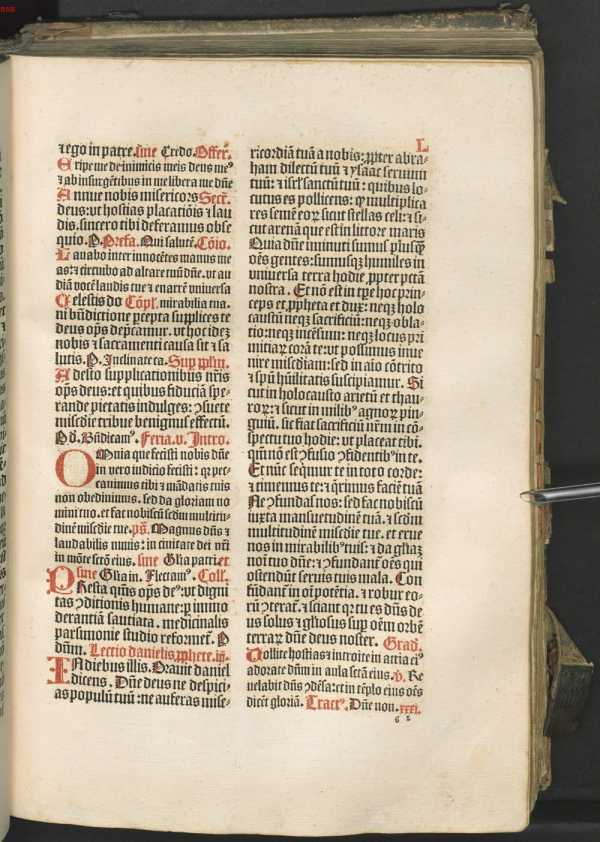 L
⁊ ego in patre. sine Credo. Offer.
Eripe me de inimicis meis deus meꝰ
⁊ ab insurgẽtibus in me libera me dñe
Annue nobis misericors Secẽ.
deus: vt hostias placatiõis ⁊ lau
dis. sincero tibi deferamus obse
quio. P. Prefa. Qui salutẽ. Cõio.
Lauabo inter innocẽtes manus me
as: ⁊ circuibo ad altare tuũ dñe. vt au
diã vocẽ laudis tue ⁊ enarrẽ vniuersa
Celestis do Cõpl. mirabilia tua.
ni bñdictione ꝑcepta supplices te
deus oꝑs dep̃camur. vt hoc idez
nobis ⁊ sacramenti causa sit ⁊ sa
lutis. P. Inclinate ca. Sup pplm.
Adesto supplicationibus nr̃is
oꝑs deus: et quibus fiduciã spe-
rande pietatis indulges: ꝯsuete
misc̃die tribue benignus effectũ.
P d. Bñdicamꝰ. Feria. v. Intro.
Omnia que fecisti nobis dñe
in vero iudicio fecisti: qꝛ pec-
cauimus tibi ⁊ mãdatis tuis
non obediuimus. sed da gloriam no
mini tuo. et fac nobiscũ scdm multitu-
dinẽ misc̃die tue. ps̃. Magnus dñs ⁊
laudabilis nimis: in ciuitate dei nr̃i
in mõte sctõ eius. sine Gl̃ia patri. et
sine Gl̃ia in. Flectamꝰ. Coll.
Presta qm̃s oꝑs deꝰ: vt digni
tas ꝯditionis humane: ꝑ immo
derantiã sauciata. medicinalis
parsimonie studio reformet̃. P
dñm. Lectio danielis. ꝓphete. iij.
In diebus illis. Orauit daniel
dicens. Dñe deus ne despici-
as populũ tuũ: ne auferas mise-
ricordiã tuã a nobis: ꝓpter abra-
ham dilectũ tuũ ⁊ ysaac seruum
tuũ: ⁊ isrl̃ sanctũ tuũ: quibus lo-
cutus es pollicens: ꝙ multiplica
res semẽ eoꝝ sicut stellas celi: ⁊ si-
cut arenã que est in littore maris
Quia dñe iminuti sumus plusqꝫ
oẽs gentes: sumusqꝫ humiles in
vniuersa terra hodie ꝓpter pctã
nostra. Et nõ est in tp̃e hoc prin-
ceps et ꝓpheta et dux: neqꝫ holo
caustũ neqꝫ sacrificiũ: neqꝫ obla-
tio: neqꝫ incẽsum: neqꝫ locus pri
mitiaꝝ corã te: vt possimus inue
nire misc̃diam: sed in aĩo cõtrito
⁊ spũ hũilitatis suscipiamur. Si
cut in holocausto arietũ et thau-
roꝝ: ⁊ sicut in milibꝰ agnoꝝ pin-
guiũ. sic fiat sacrificiũ nrm̃ in cõ-
spectu tuo hodie: vt placeat tibi.
qm̃ nõ est ꝯfusio ꝯfidentibꝰ in te.
Et nũc seq̃mur te in toto corde:
⁊ timemus te: ⁊ q̃rimus faciẽ tuã
Ne ꝯfundas nos: sed fac nobiscũ
iuxta mansuetudinẽ tuã. ⁊ scdm
multitudinẽ misc̃die tue. et erue
nos in mirabilibꝰ tuis: ⁊ da gl̃iaz
noĩ tuo dñe: ⁊ ꝯfundant̃ oẽs qui
ostendũt seruis tuis mala. Con
fũdant̃ in oĩ potẽtia. ⁊ robur eo-
rũ ꝯterat̃. ⁊ sciant qꝛ tu es dñs de
us solus ⁊ gl̃iosus sup oẽm orbẽ
terraꝝ dñe deus noster. Grad.
Tollite hostias ⁊ introite in atria eiꝰ
adorate dñm in aula sctã eius. v̕. Re
uelabit dñs ꝯdẽsa: et in tẽplo eius oẽs
dicẽt gloriã. Tractꝰ. Dñe non. xxxi.